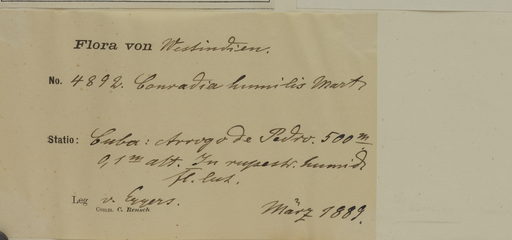 Flora von Westindien.
No. 4892. Conradia humilis Mart.
Statio: Cuba: Arroyo de Pedro. 500 m
0,1 m alt. In rupestr. humid.
fl. lut.
Leg v. Eggers.
Comm. C. Bensch
März 1889.